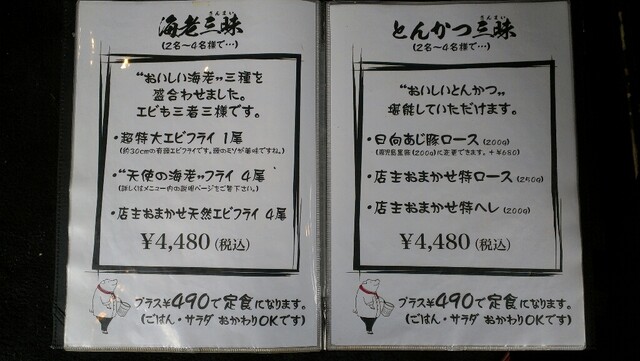 さんまい
海老三昧
(2名～4名様で…)
"おいしい海老"三種を
盛合わせました。
エビも三者三様です。
・超特大エビフライ 1尾
(約30cmの有頭エビフライです。頭のミソが美味ですね。)
・"天使の海老"フライ 4尾
(詳しくはメニュー内の説明ページをご覧下さい。)
・店主おまかせ天然エビフライ 4尾
¥4,480(税込)
プラス¥490で定食になります。
(ごはん・サラダ おかわりOKです)
さんまい
とんかつ三昧
(2名～4名様で…)
"おいしいとんかつ"
堪能していただけます。
・日向あじ豚ロース(200g)
(鹿児島黒豚(200g)に変更できます。+¥680)
・店主おまかせ特ロース(250g)
・店主おまかせ特ヘレ(200g)
¥4,480(税込)
プラス¥490で定食になります。
(ごはん・サラダ おかわりOKです)